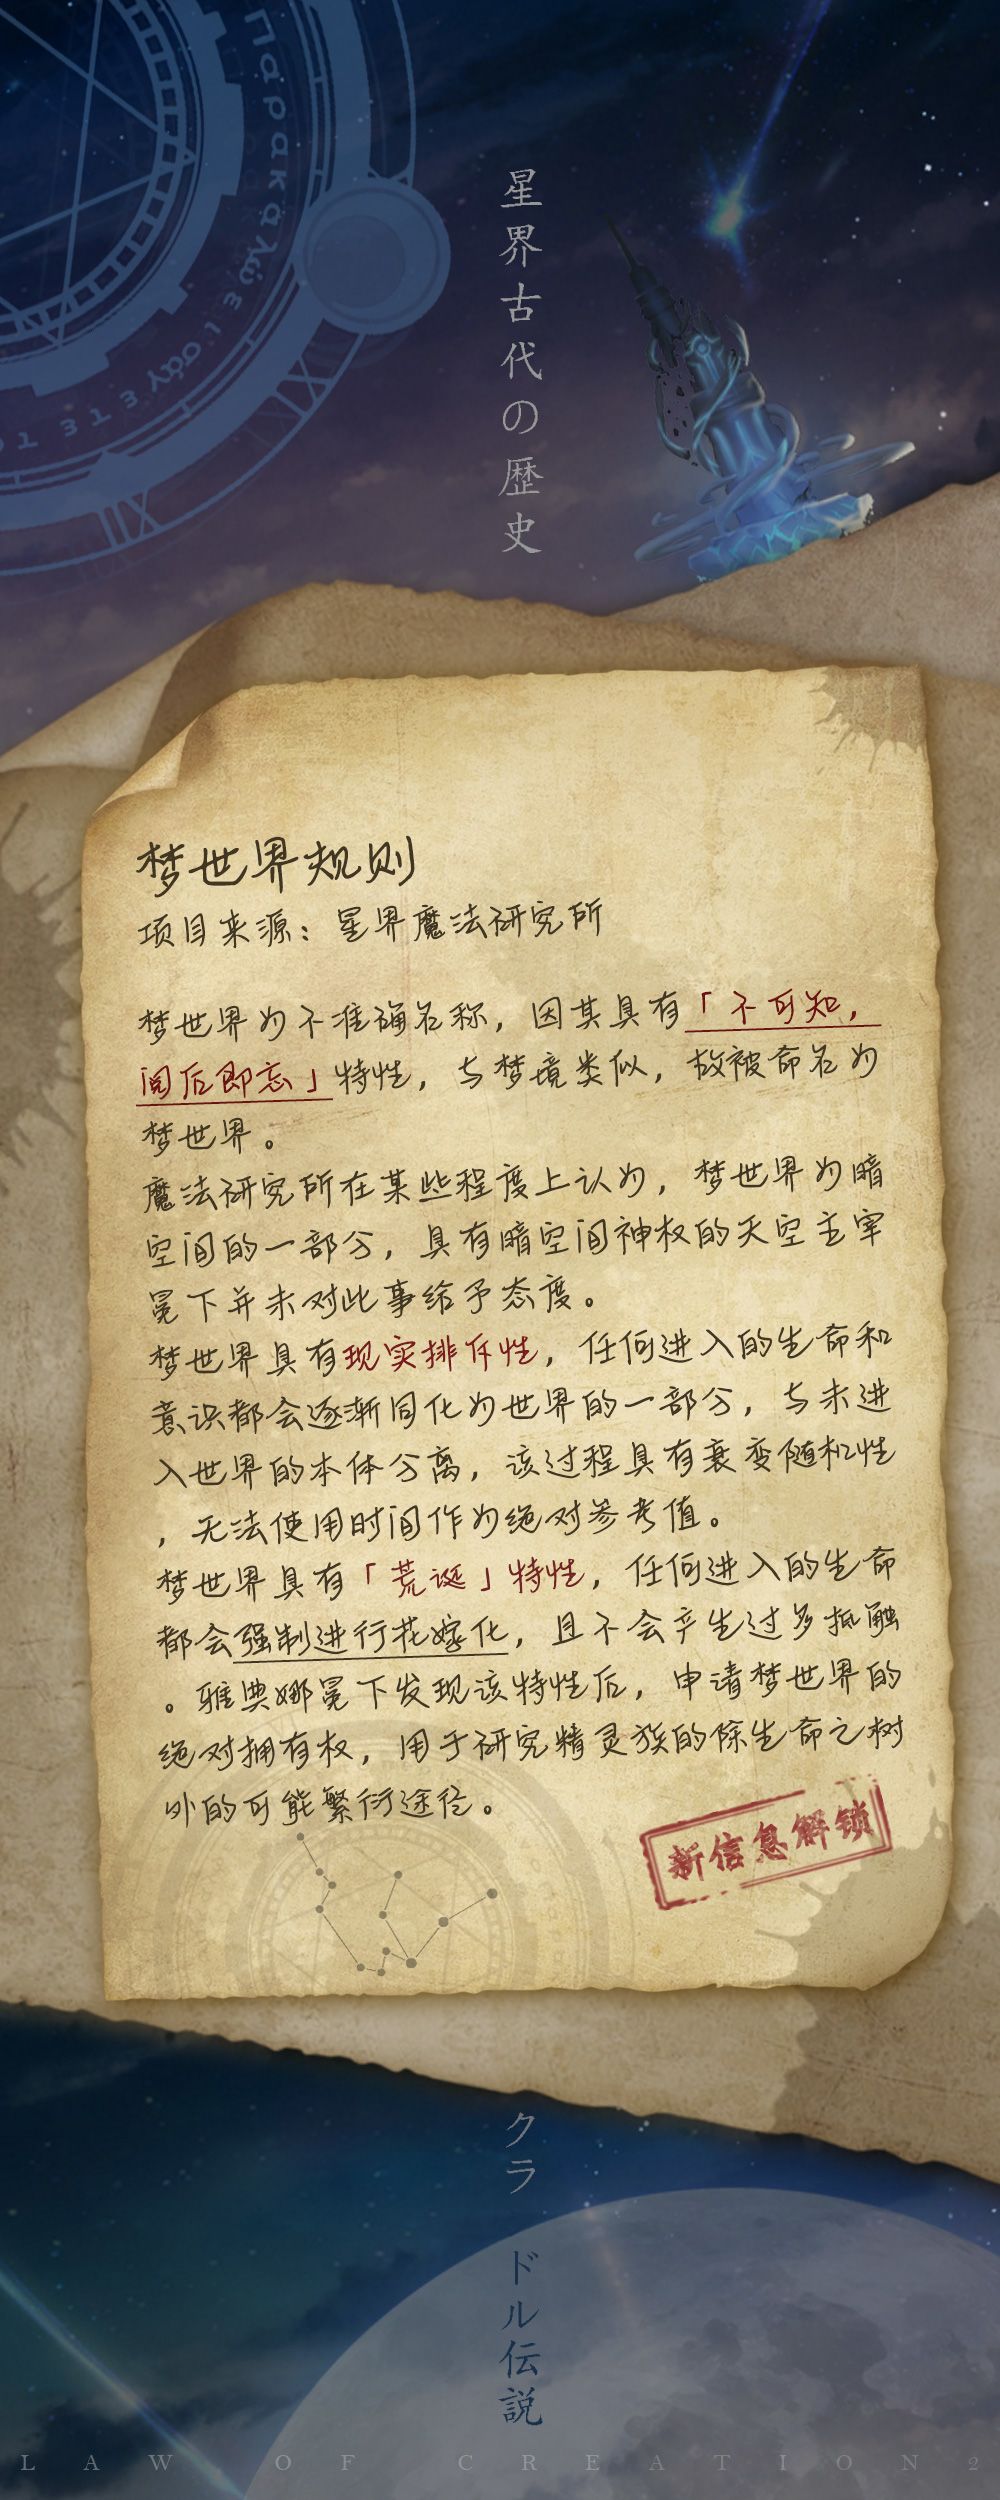 Παρακαλώ εισάγετε το
星界古代の歴史
梦世界规则
项目来源：星界魔法研究所
梦世界为不准确名称，因其具有「不可知，
阅后即忘」特性，与梦境类似，故被命名为
梦世界。
魔法研究所在某些程度上认为，梦世界为暗
空间的一部分，具有暗空间神权的天空主宰
冕下并未对此事给予态度。
梦世界具有现实排斥性，任何进入的生命和
意识都会逐渐同化为世界的一部分，与未进
入世界的本体分离，该过程具有衰变随机性
，无法使用时间作为绝对参考值。
梦世界具有「荒诞」特性，任何进入的生命
都会强制进行花嫁化，且不会产生过多抵触
。雅典娜冕下发现该特性后，申请梦世界的
绝对拥有权，用于研究精灵族的除生命之树
外的可能繁衍途径。
新信息解锁
クラ
ドル伝説
LAW OF CREATION2